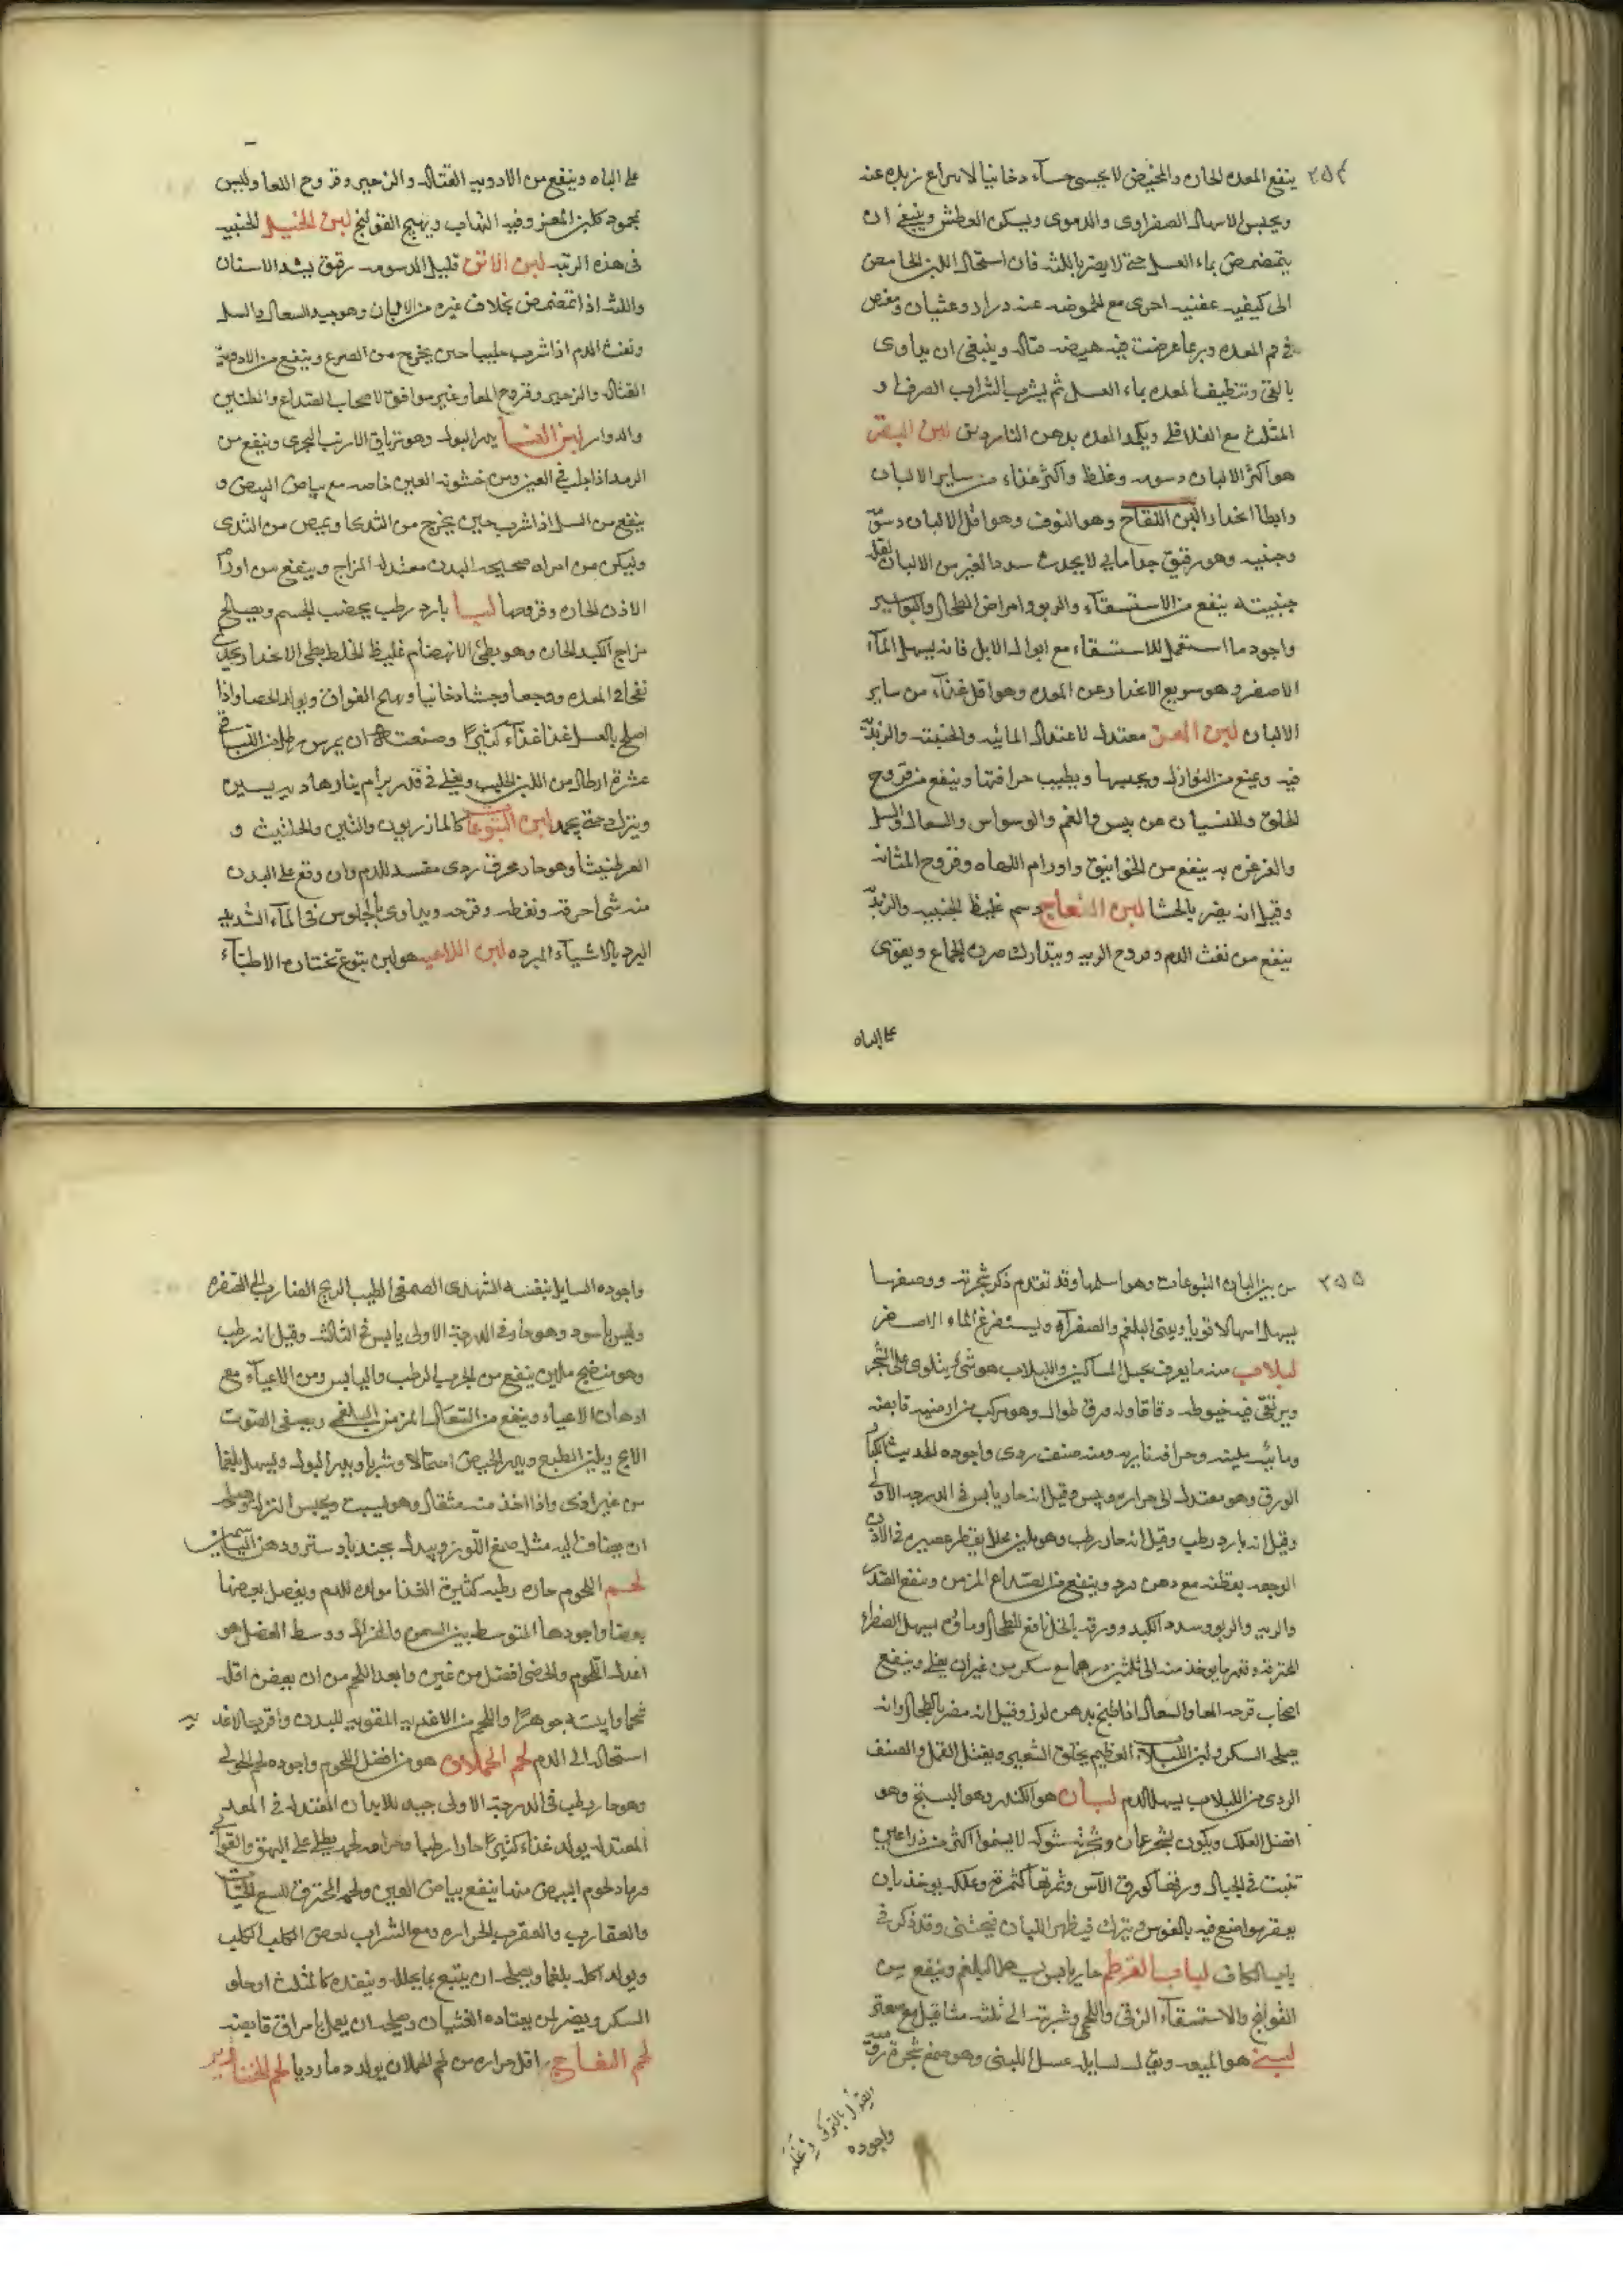 ٢٥٤
ينفع المعده الحاره والمخيض لا يجسى جساء دخانيا لانتزاع زبده عنه
ويحبس الاسهال الصفراوى والدموى ويسكن العطش وينبغى ان
يتمضمض بماء العسل حتى لا يضر باللثه فان استحال اللبن الحامض
الى كيفيه عفنيه اخرى مع الحموضه عنه دوار وغثيان ومغص
فى فم المعده وربما عرضت فيه هيضه قتاله وينبغى ان يداوى
بالقئ وتنظيف المعده بماء العسل ثم يشرب الشراب الصرف او
المثلث مع الفلافلى ويكمد المعده بدهن الناردين لبن البقر
هو اكثر الالبان دسومه وغلظ واكثر غذاء من ساير الالبان
وابطا انحدارا لبن اللقاح وهو النوق وهو اقل الالبان دسومة
وجنبيه وهو رقيق جدا مايى لا يحدث سددا لغيره من الالبان لقلة
جنبيته ينفع من الاستسقاء والربو وامراض الطحال والبواسير
واجود ما استعمل للاستسقاء مع ابوال الابل فانه يسهل الماء
الاصفر وهو سريع الانحدار عن المعده وهو اقل غذاء من ساير
الالبان لبن المعز معتدل لاعتدال المائيه والجبنيه والزبدية
فيه ويمنع من النوازل ويحبسها ويطيب حرافتها وينفع من قروح
الحلق واللسان من يبس والغم والوسواس والسعال والسل
والغرغره به ينفع من الخوانيق واورام اللهاه وقروح المثانه
وقيل انه يضر بالحشا لبن النعاج دسم غليظ الجنبيه والزبدية
ينفع من نفث الدم وقروح الريه ويتدارك ضرر الجماع ويقوى
على الباه
على الباه وينفع من الادويه القتاله والزحير وقروح المعا وليس
بمحمود كلبن المعز وفيه التهاب ويهيج القولنج لبن الخيل الجنبيه
فى هذه الرتبه لبن الاتن قليل الدسومه رقيق يشد الاسنان
واللثه اذا تمضمض بخلاف غيره من الالبان وهو جيد السعال والسل
ونفث الدم اذا شرب حليبا حين يخرج من الضرع وينفع من الادوية
القتاله والزحير وقروح المعا وغير موافق لاصحاب الصداع والطنين
والدوار لبن النسا يدر البول وهو ترياق الارنب البحرى وينفع من
الرمد اذا حلب فى العين ومن خشونه العين خاصه مع بياض البيض و
ينفع من السل اذا شرب حين يخرج من الثدى او يمص من الثدى
وليكن من امراه صحيحه البدن معتدله المزاج وينفع من اورام
الاذن الحاره وقروحها لبا بارد رطب يخصب الجسم ويصلح
مزاج الكبد الحاره وهو بطئ الانهضام غليظ الخلط بطى الانحدار يحدث
نفخا فى المعده ووجعا وجشا دخانيا ويهيج الفواق ويولد الحصا واذا
اصلح بالعسل غذا غذاء كثيرا وصنعته ان يمرس رطل من اللبا فى
عشرة ارطال من اللبن الحليب ويغلى فى قدر برام بنار هاديه يسيره
ويترك حتى يجمد لبن اليتوعات كالمازريون والتين والحلتيث و
العرطنيثا وهو حار محرق ردى مفسد للدم وان وقع على البدن
منه شئ احرقه ونفطه وقرحه ويداوى بالجلوس فى الماء الشديد
البرد بالاشياء المبرده لبن اللاعيه هو لبن يتوع تختاره الاطباء
٢٥٥
من بين البان اليتوعات وهو اسلمها وقد تقدم ذكر شجرته ووصفها
يسهل اسهالا قويا ويقئ البلغم والصفراء ويستفرغ الماء الاصفر
لبلاب منه ما يعرف بحبل المساكين واللبلاب هو شئ يتلوى على الشجر
ويرتقى فيه خيوطه دقاقا وله ورق طوال وهو مركب من ارضيه قابضه
ومائيه ملينه وحرافه ناريه ومنه صنف ردى واجوده الحديث الكبار
الورق وهو معتدل الى حراره ويبس وقيل انه حار يابس فى الدرجه الاولى
وقيل انه بارد رطب وقيل انه حار رطب وهو ملين محلل يقطر عصيره فى الاذن
الوجعه بقطنه مع دهن ورد وينفع من الصداع المزمن وينفع الصدر
والريه والربو وسدد الكبد وورقه بالخل نافع للطحال وماؤه يسهل الصفراء
المحترقه وقدر ما يوخذ منه الى ثلثين درهما مع سكر من غير ان يغلى وينفع
اصحاب قرحه المعا والسعال اذا طبخ بدهن لوز وقيل انه مضر بالطحال وانه
يصلحه السكر ولبن اللبلاب العظيم يحلق الشعر ويقتل القمل والصنف
الردى من اللبلاب يسهل الدم لبان هو الكندر وهو البستج وهو
افضل العلك ويكون بشجر عمان وشجرته شوكه لا يسموا اكثر من ذراعين
تنبت فى الجبال ورقها كورق الآس وثمرتها كثمرته وعلكه يوخذ بان
يعقر مواضع فيه بالفوس ويترك فيظهر اللبان فيجتنى وقد ذكر فى
باب الكاف لباب القرطم حار يابس يسهل البلغم وينفع من
القولنج والاستسقاء الزقى واللحمى وشربته الى ثلثه مثاقيل مع سعتر
لبنى هو الميعه ويقال لسايله عسل اللبنى وهو صمغ شجرة روميه
واجوده
واجوده السايل بنفسه الشهدى الصمغى الطيب الريح الضارب الى الصفره
وليس باسود وهو حار فى الدرجه الاولى يابس فى الثالثه وقيل انه رطب
وهو منضج ملين ينفع من الجرب الرطب واليابس ومن الاعياء مع
ادهان الاعياء وينفع من السعال المزمن البلغمى ويصفى الصوت
الابح ويلين الطبع ويدر الحيض احتمالا وشربا ويدر البول ويسهل بلغما
من غير اذى واذا اخذ منه مثقال وهو يسبت ويحبس النزله ويصلحه
ان يضاف اليه مثله صمغ اللوز وبدله جندبادستر ودهن الياسمين
لحم اللحوم حاره رطبه كثيرة الغذا مولده للدم ويفضل بعضها
بعضا واجودها المتوسط بين السمن والهزال ووسط العضل هو
اعدل اللحوم والخصى افضل من غيره وابعد اللحم من ان يعفن اقله
شحما وايبسه جوهرا واللحم من الاغذيه المقويه للبدن واقرب الاغذيه
استحاله الى الدم لحم الحملان هو من افضل اللحوم واجوده لحم الحولى
وهو حار رطب فى الدرجة الاولى جيد للابدان المعتدله فى المعده
المعتدله يولد غذاء كثيرا حارا رطبا وحراقه لحمه يطلى على البهق والقوابى
ورماد لحوم البيض منها ينفع بياض العين ولحمه المحترق للسع الحيات
والعقارب والعقرب الجراره ومع الشراب لعض الكلب الكلب
ويولد اكله بلغما ويصلحه ان يتبع بما يحلله وينفذه كالمثلث او حلو
السكر ويضر لمن يعتاده الغثيان ويصلحه ان يعمل بامراق قابضه
لحم النعاج اقل حراره من لحم الحملان يولد دما رديا لحم الخنازير